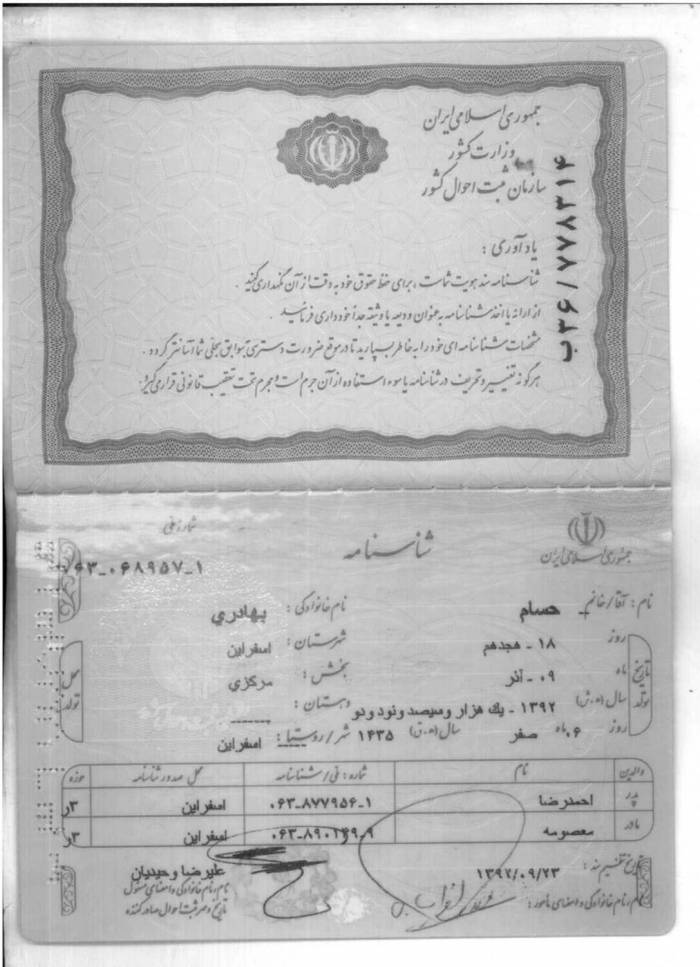 جمهوری اسلامی ایران
وزارت کشور
سازمان ثبت احوال کشور
ب۳۶/۷۷۸۳۱۴
یادآوری :
شناسنامه سند هویت شماست ، برای حفظ حقوق خود به دقت از آن نگهداری کنید .
از ارائه یا اخذ شناسنامه به عنوان ودیعه یا وثیقه جداً خودداری فرمائید .
مشخصات شناسنامه ای خود را به خاطر بسپارید تا در موقع ضرورت دسترسی به سوابق سجلی شما آسانتر گردد .
هرگونه تغییر و تحریف در شناسنامه یا سوء استفاده از آن جرم است و مجرم تحت تعقیب قانونی قرار می گیرد .
جمهوری اسلامی ایران
شناسنامه
شماره ملی
۰۶۸۹۵۷_۱
نام : آقا/خانم حسام نام خانوادگی : بهادری
تاریخ تولد
روز ۱۸ - هجدهم
ماه ۰۹ - آذر
سال (ه.ش) ۱۳۹۲ - یک هزار وسیصد ونود ودو
روز ۶ ماه صفر سال (ه.ق) ۱۴۳۵
محل تولد
شهرستان : اسفراین
بخش : مرکزی
دهستان : ------
شهر/روستا : اسفراین
والدین نام شماره : ملی/شناسنامه محل صدور شناسنامه حوزه
پدر احمدرضا ۰۶۳_۸۷۷۹۵۶_۱ اسفراین ۳ر
مادر معصومه اسفراین ۳ر
تاریخ تنظیم سند : ۱۳۹۲/۰۹/۲۳
نام، نام خانوادگی و امضای مامور :
علیرضا وحیدیان
نام، نام خانوادگی و امضای مسئول
تاریخ و مهر ثبت احوال صادر کننده